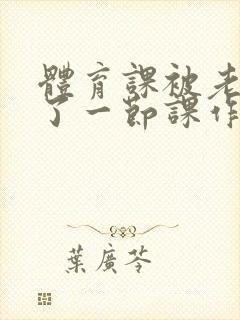 體育課被老
了一節課作
葉廣芩